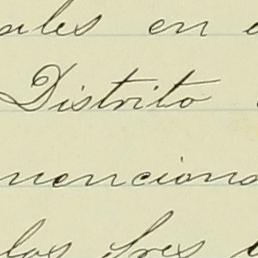 ales en
Distrito
menciona
los tres